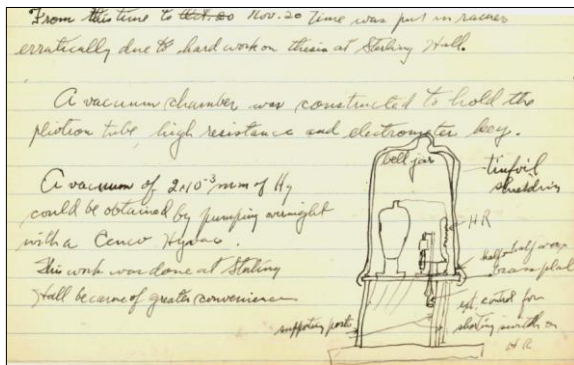 From this time to Oct. 20 Nov. 20 time was put in rather
erratically due to hard work on thesis at Sterling Hall.
A vacuum chamber was constructed to hold the
pliotron tube, high resistance and electrometer key.
A vacuum of 2×10⁻³ mm of Hg
could be obtained by pumping overnight
with a Cenco Hyvac.
This work was done at Sterling
Hall because of greater convenience
bell jar
tinfoil
shielding
HR
half & half wax
brass plate
ext. control for
shorting switch on
HR
supporting posts